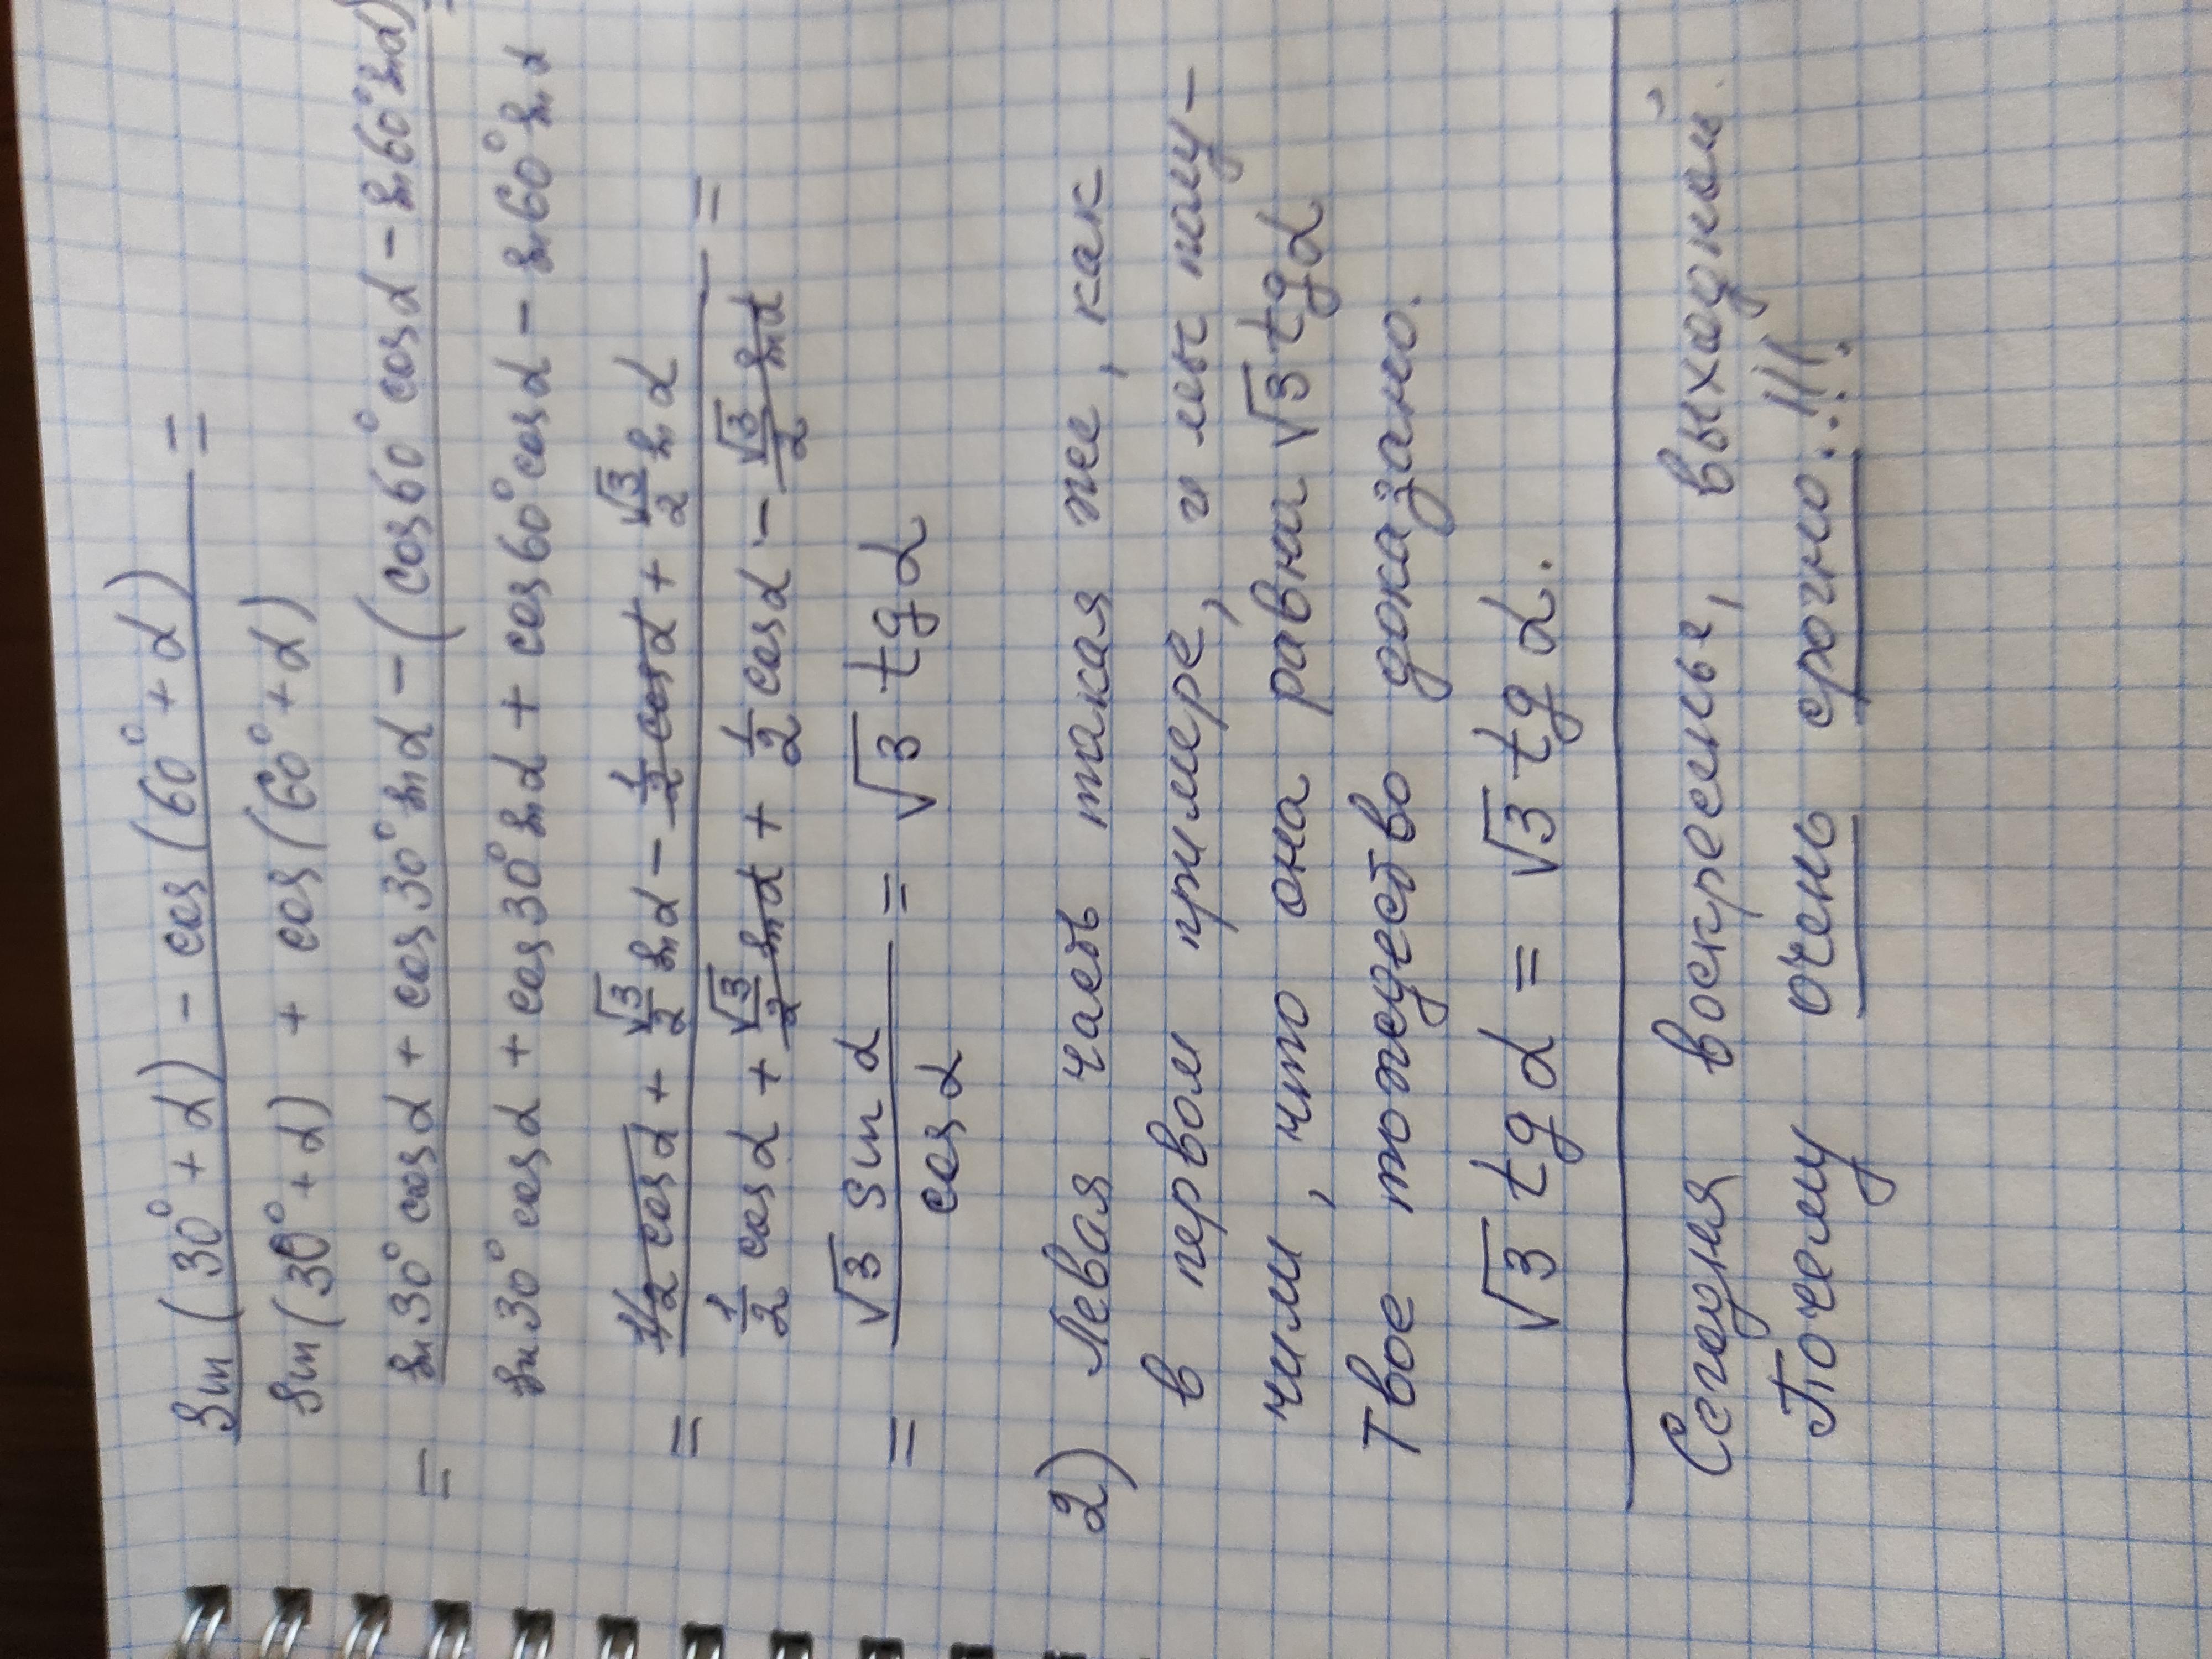 sin(30°+α) - cos(60°+α) =
sin(30°+α) + cos(60°+α)
= sin30°cosα + cos30°sinα - (cos60°cosα - sin60°sinα) =
sin30°cosα + cos30°sinα + cos60°cosα - sin60°sinα
= 1/2 cosα + √3/2 sinα - 1/2 cosα + √3/2 sinα =
1/2 cosα + √3/2 sinα + 1/2 cosα - √3/2 sinα
= √3 sinα = √3 tgα
cosα
2) Левая часть такая же, как
в первом примере, и мы полу-
чили, что она равна √3 tgα
Твое тождество доказано.
√3 tgα = √3 tgα.
Сегодня воскресенье, выходной.
Почему очень срочно..!!!